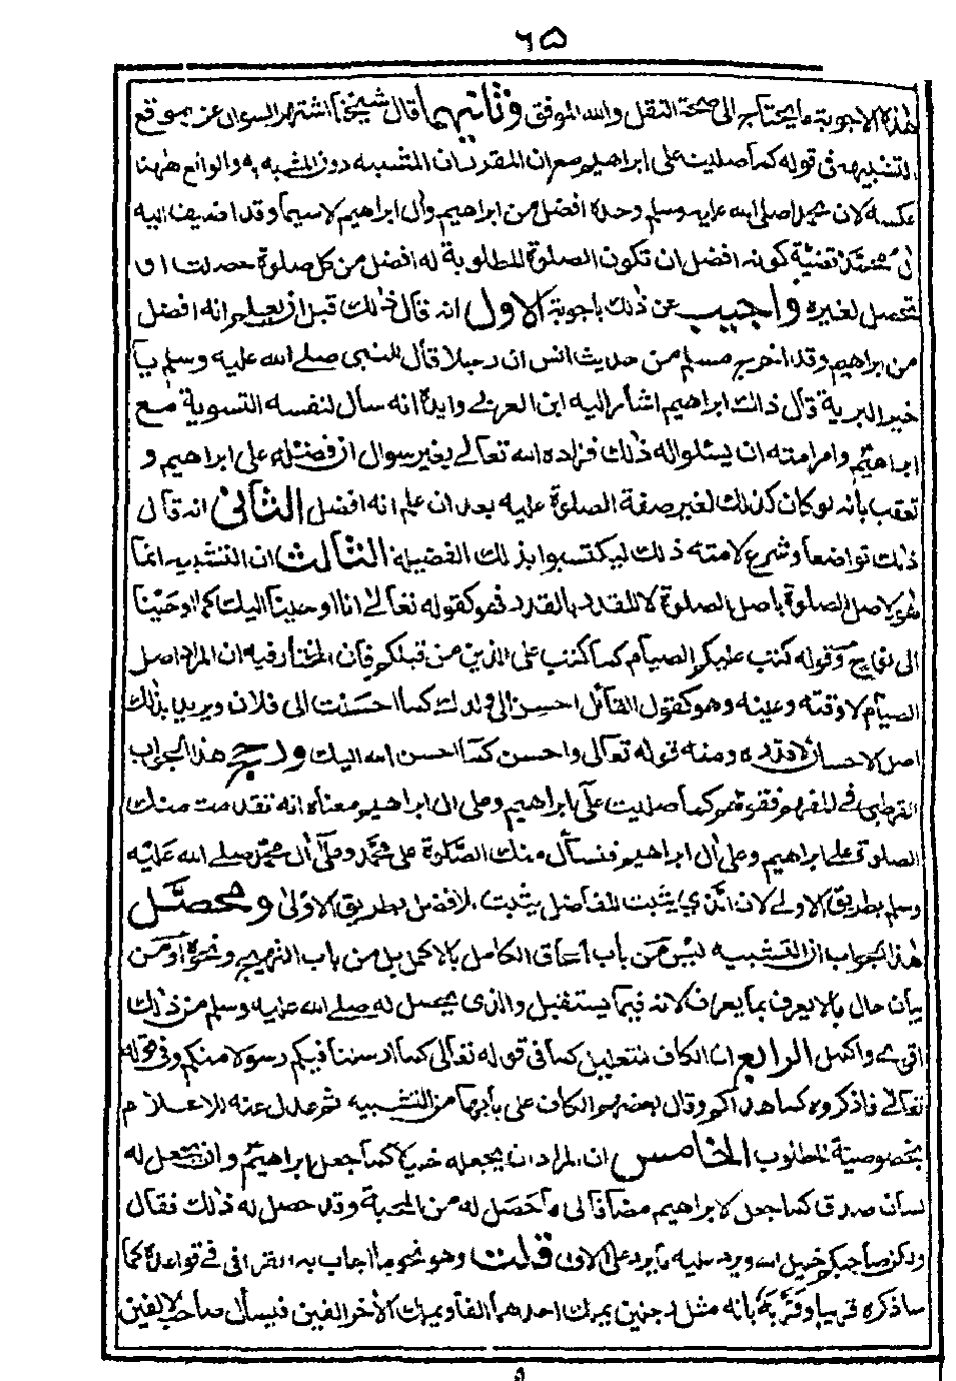 ٦٥
هذه الاجوبة ما يحتاج الى صحة النقل والله الموفق وثانيهما قال شيخنا اشتهر السوال عن موقع
التشبيه فى قوله كما صليت على ابراهيم مع ان المقرر ان المشبه دون المشبه به والواقع ههنا
عكسه لان محمدا صلى الله عليه وسلم وحده افضل من ابراهيم وآل ابراهيم لاسيما وقد اضيف اليه
آل محمد وقضية كونه افضل ان تكون الصلوة المطلوبة له افضل من كل صلوة حصلت او
تحصل لغيره واجيب عن ذلك باجوبة الاول انه قال ذلك قبل ان يعلم انه افضل
من ابراهيم وقد اخرج مسلم من حديث انس ان رجلا قال للنبى صلے الله عليه وسلم يا
خير البرية قال ذاك ابراهيم اشار اليه ابن العربى وايده انه سأل لنفسه التسوية مع
ابراهيم وامر امته ان يسئلوا له ذلك فزاده الله تعالے بغير سوال ان فضله على ابراهيم و
تعقب بأنه لو كان كذلك لغير صفة الصلوة عليه بعد ان علم انه افضل الثانى انه قال
ذلك تواضعا وشرع لامته ذلك ليكتسبوا بذلك الفضيلة الثالث ان التشبيه انما
هو لاصل الصلوة باصل الصلوة لا للقدر بالقدر فهو كقوله تعالے انا اوحينا اليك كما اوحينا
الى نوح وقوله كتب عليكم الصيام كما كتب على الذين من قبلكم فان المختار فيه ان المراد اصل
الصيام لا وقته وعينه وهو كقول القائل احسن الى ولدك كما احسنت الى فلان ويريد بذلك
اصل الاحسان لا قدره ومنه قوله تعالى واحسن كما احسن الله اليك ورجح هذا الجواب
القرطبى فے المفهم فقوله كما صليت على ابراهيم وعلى ال ابراهيم معناه انه تقدمت منك
الصلوة على ابراهيم وعلى ال ابراهيم فنسأل منك الصلوة على محمد وعلى ال محمد صلے الله عليه
وسلم بطريق الاولے لان الذي يثبت للفاضل يثبت للافضل بطريق الاولى ومحصل
هذا الجواب ان التشبيه ليس من باب الحاق الكامل بالاكمل بل من باب التهييج ونحوه او من
بيان حال ما لا يعرف بما يعرف لانه فيما يستقبل والذى يحصل له صلے الله عليه وسلم من ذلك
اقوى واكمل الرابع ان الكاف للتعليل كما فى قوله تعالى كما ارسلنا فيكم رسولا منكم وفى قوله
تعالے فاذكروه كما هداكم وقال بعضهم الكاف على بأبها من التشبيه ثم عدل عنه للاعلام
بخصوصية المطلوب الخامس ان المراد ان يجعله خليلا كما جعل ابراهيم وان يجعل له
لسان صدق كما جعل لابراهيم مضافا الى ما حصل له من المحبة وقد حصل له ذلك فقال
ولكن صاحبكم خليل الله ويرد عليه ما يرد على الاول قلت وهو نحو ما اجاب به القرافى فے قواعده كما
ساذكره قريبا وقربه بأنه مثل رجلين يملك احدهما الفا ويملك الآخر الفين فيسأل صاحب الالفين